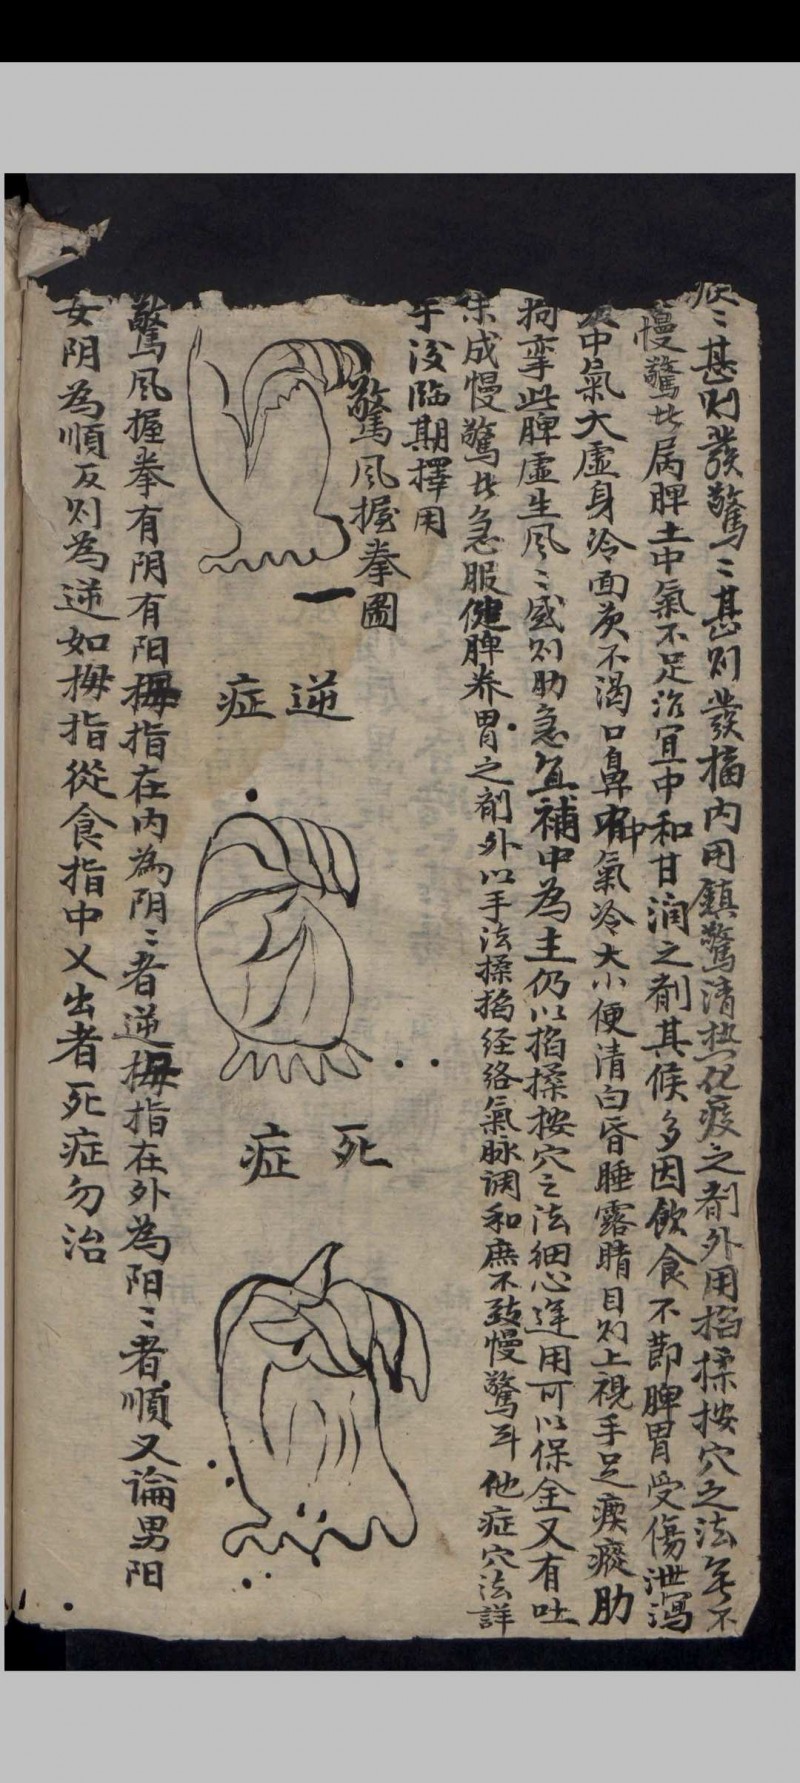 痰〻甚則發驚〻甚則發搐内用鎮驚清热化痰之剤外用掐揉按穴之法無不
慢驚此属脾土中氣不足治宜中和甘润之剤其候多因飲食不節脾胃受傷泄瀉
中氣大虛身冷面灰不渴口鼻中氣冷大小便清白昏睡露睛目則上視手足瘈瘲肋
拘挛此脾虛生风〻盛則肋急宜補中為主仍以掐揉按穴之法细心逢用可以保全又有吐
未成慢驚此急服健脾养胃之剤外以手法揉掐经络氣脉调和庶不致慢驚耳他症穴法詳
于後臨期擇用
驚风握拳圖
一
逆症
死症
驚风握拳有阴有阳拇指在内為阴〻者逆拇指在外為阳〻者順又論男阳
女阴為順反则為逆如拇指從食指中乂出者死症勿治